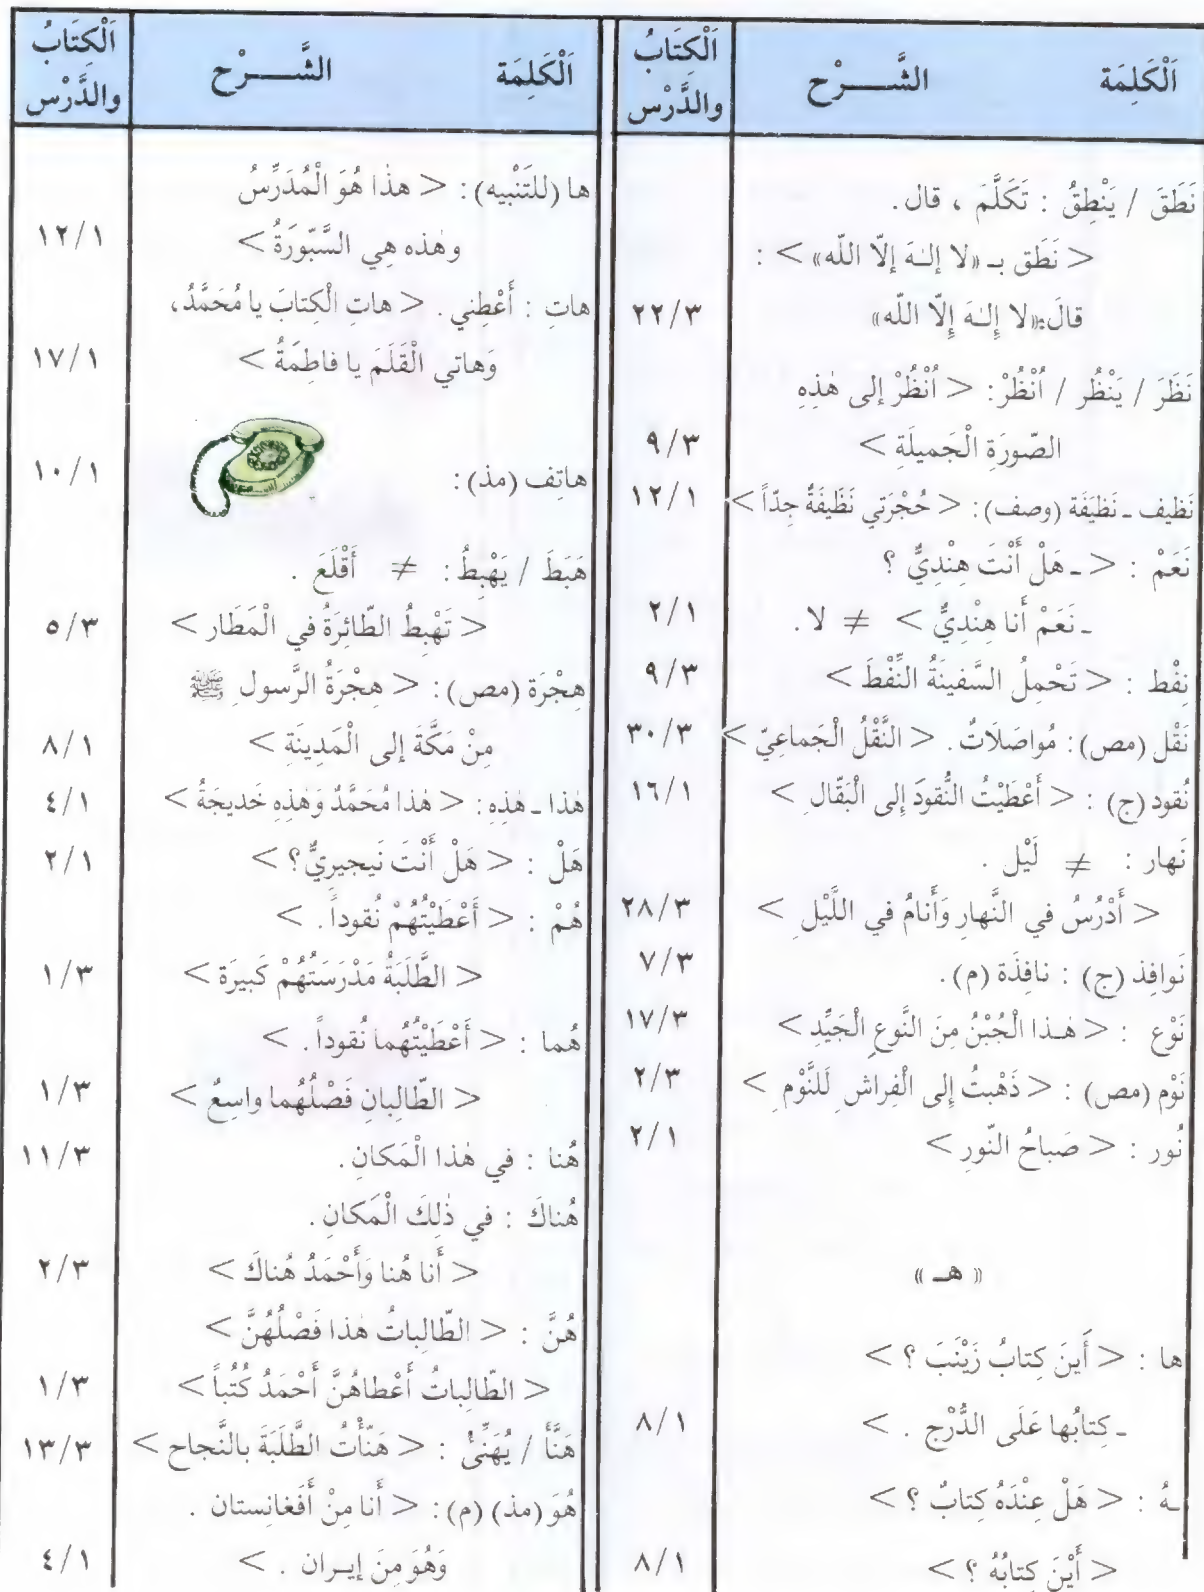 اَلْكَلِمَة الشَّـــرْح اَلْكِتَابُ والدَّرْس
نَطَقَ / يَنْطِقُ : تَكَلَّمَ ، قال .
< نَطَق بـ «لا إِلـٰهَ إلاّ اللّه» > :
قالَ:«لا إِلـٰهَ إِلاّ اللّه» ٢٢/٣
نَظَرَ / يَنْظُر / اُنْظُرْ: < اُنْظُرْ إلى هٰذِهِ
الصّورَةِ الْجَميلَةِ > ٩/٣
نَظيف ـ نَظيَفَة (وصف): < حُجْرَتي نَظَيفَةٌ جِدّاً > ١٢/١
نَعَمْ : < ـ هَلْ أَنْتَ هِنْدِيٌّ ؟
ـ نَعَمْ أَنا هِنْدِيٌّ > ≠ لا . ٢/١
نِفْط : < تَحْمِلُ السَّفينَةُ النِّفْطَ > ٩/٣
نَقْل (مص): مُواصَلَاتٌ . < النَّقْلُ الْجَماعِيّ > ٣٠/٣
نُقود (ج) : < أَعْطَيْتُ النُّقودَ إِلى الْبَقّال > ١٦/١
نَهار : ≠ لَيْل .
< أَدْرُسُ في النَّهارِ وَأَنامُ في اللَّيْلِ > ٢٨/٣
نَوافِذ (ج) : نافِذَة (م). ٧/٣
نَوْع : < هـٰذا الْجُبْنُ مِنَ النَّوعِ الْجَيِّدِ > ١٧/٣
نَوْم (مص) : < ذَهْبتُ إِلى الْفِراشِ لَلنَّوْمِ > ٢/٣
نُور : < صَباحُ النّور > ٢/١
« هـ »
ها : < أَينَ كِتابُ زَيْنَبَ ؟ >
ـ كِتابُها عَلَى الدُّرْج . > ٨/١
ـهُ : < هَلْ عِنْدَهُ كِتابٌ ؟ >
< أَيْنَ كِتابُهُ ؟ > ٨/١
اَلْكَلِمَة الشَّـــرْح اَلْكِتَابُ والدَّرْس
ها (للتَنْبيه) : < هذٰا هُوَ الْمُدَرِّسُ
وهٰذه هِي السَّبّورَةُ > ١٢/١
هاتِ : أَعْطِني . < هاتِ الْكِتابَ يا مُحَمَّدُ،
وَهاتي الْقَلَمَ يا فاطِمَةُ > ١٧/١
هاتِف (مذ): ١٠/١
هَبَطَ / يَهْبِطُ : ≠ أَقْلَعَ .
< تَهْبِطُ الطّائِرَةُ في الْمَطَار > ٥/٣
هِجْرَة (مص): < هِجْرَةُ الرَّسولِ ﷺ
مِنْ مَكَّةَ إلى الْمَدِينَةِ > ٨/١
هٰذا ـ هٰذِه: < هٰذا مُحَمَّدٌ وَهٰذِهِ خَديجَةُ > ٤/١
هَلْ : < هَلْ أَنْتَ نَيجيرِيٌّ؟ > ٢/١
هُمْ : < أَعْطَيْتُهُمْ نُقوداً . >
< الطَّلَبَةُ مَدْرَسَتُهُمْ كَبيرَة > ١/٣
هُما : < أَعْطَيْتُهُما نُقوداً . >
< الطّالِبانِ فَصْلُهُما واسِعٌ > ١/٣
هُنا : في هٰذا الْمَكانِ. ١١/٣
هُناكَ : في ذٰلِكَ الْمَكانِ .
< أَنا هُنا وَأَحْمَدُ هُناكَ > ٢/٣
هُنَّ : < الطّالِباتُ هٰذا فَصْلُهُنَّ >
< الطّالِباتُ أَعْطاهُنَّ أَحْمَدُ كُتُباً > ١/٣
هَنَّأَ / يُهَنِّئُ : < هَنّأْتُ الطَّلَبَةَ بالنَّجاح > ١٣/٣
هُوَ (مذ) (م) : < أَنا مِنْ أَفَغانِستان .
وَهُوَ مِنَ إيـران . > ٤/١